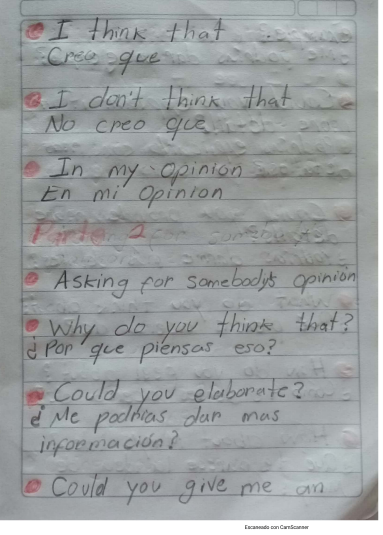 I think that
Creo que
I don't think that
No creo que
In my opinion
En mi Opinion
Parte 2
Asking for somebody's opinion
Why do you think that?
¿Por que piensas eso?
Could you elaborate?
¿Me podrias dar mas
información?
Could you give me an
Escaneado con CamScanner